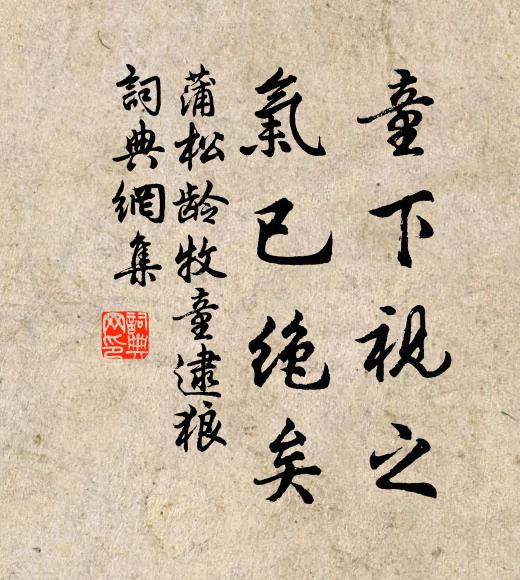 童下視之
氣已絶矣
蒲松龄牧童逮狼
詞典網集
詞典
网印